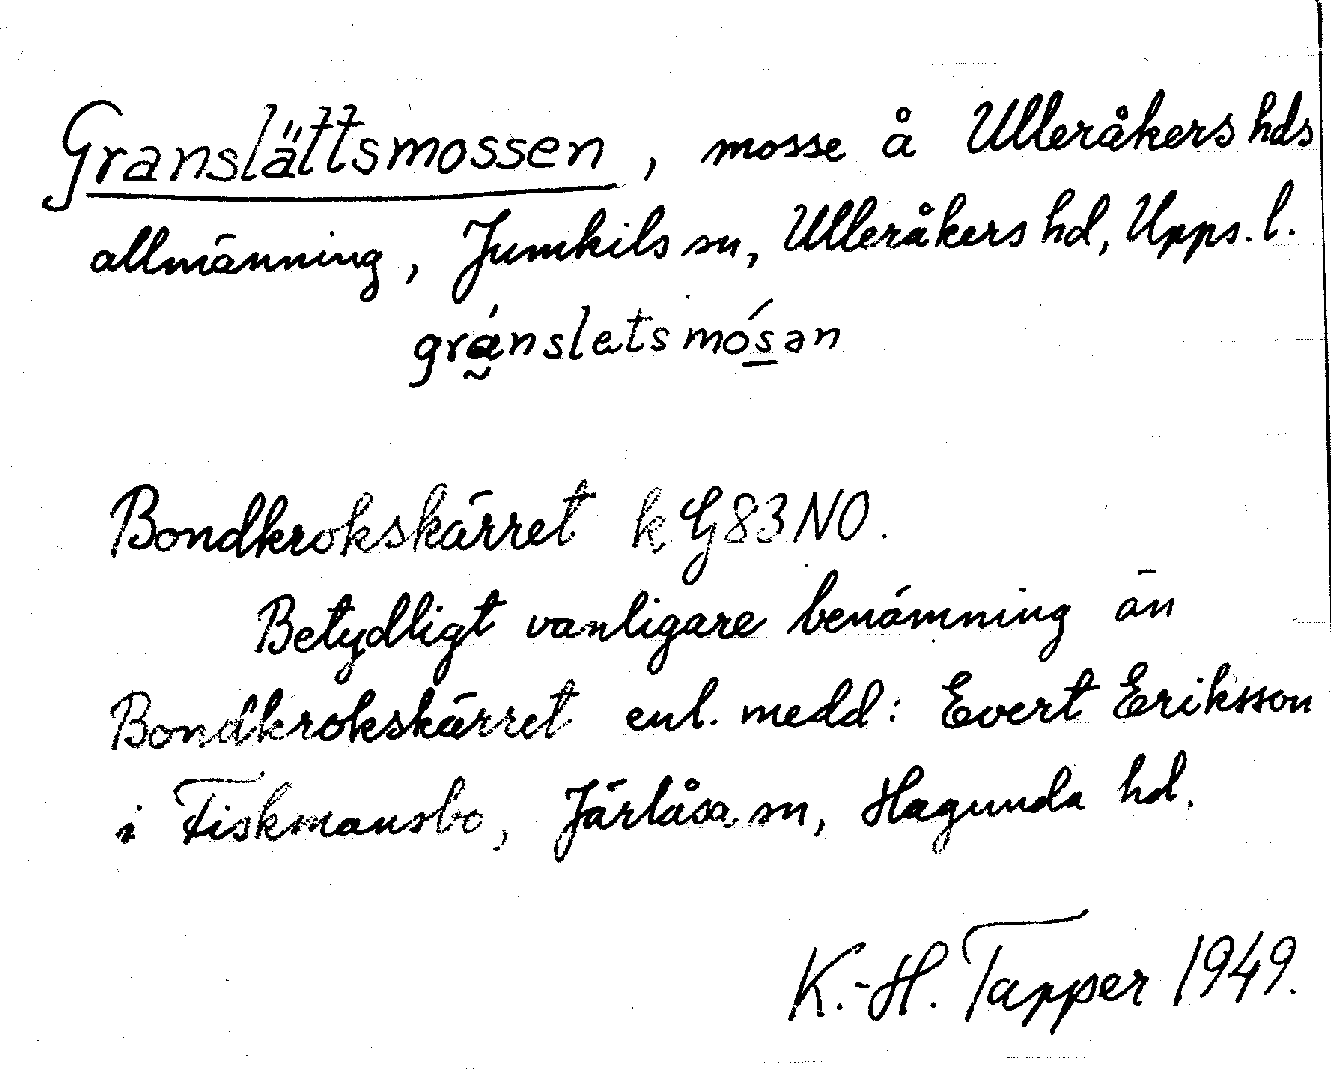 Granslättsmossen, mosse å Ulleråkers hds
allmänning, Jumkils sn, Ulleråkers hd, Upps. l.
gránslets mósan
Bondkrokskärret k G83NO.
Betydligt vanligare benämning än
Bondkrokskärret enl. medd: Evert Eriksson
i Fiskmansbo, Järlåsa sn, Hagunda hd.
K.-H. Tapper 1949.